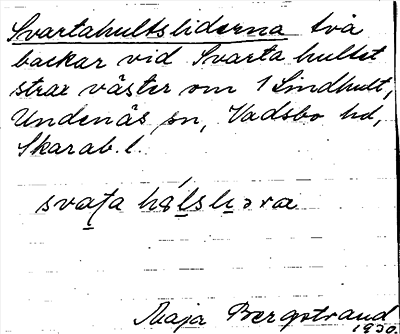 Svartahultsliderna två
backar vid Svarta hultet
strax väster om 1 Lindhult,
Undenäs sn, Vadsbo hd,
Skarab. l.
svaṭa hál̠sl̠i̠əra
Maja Bergstrand
1930.